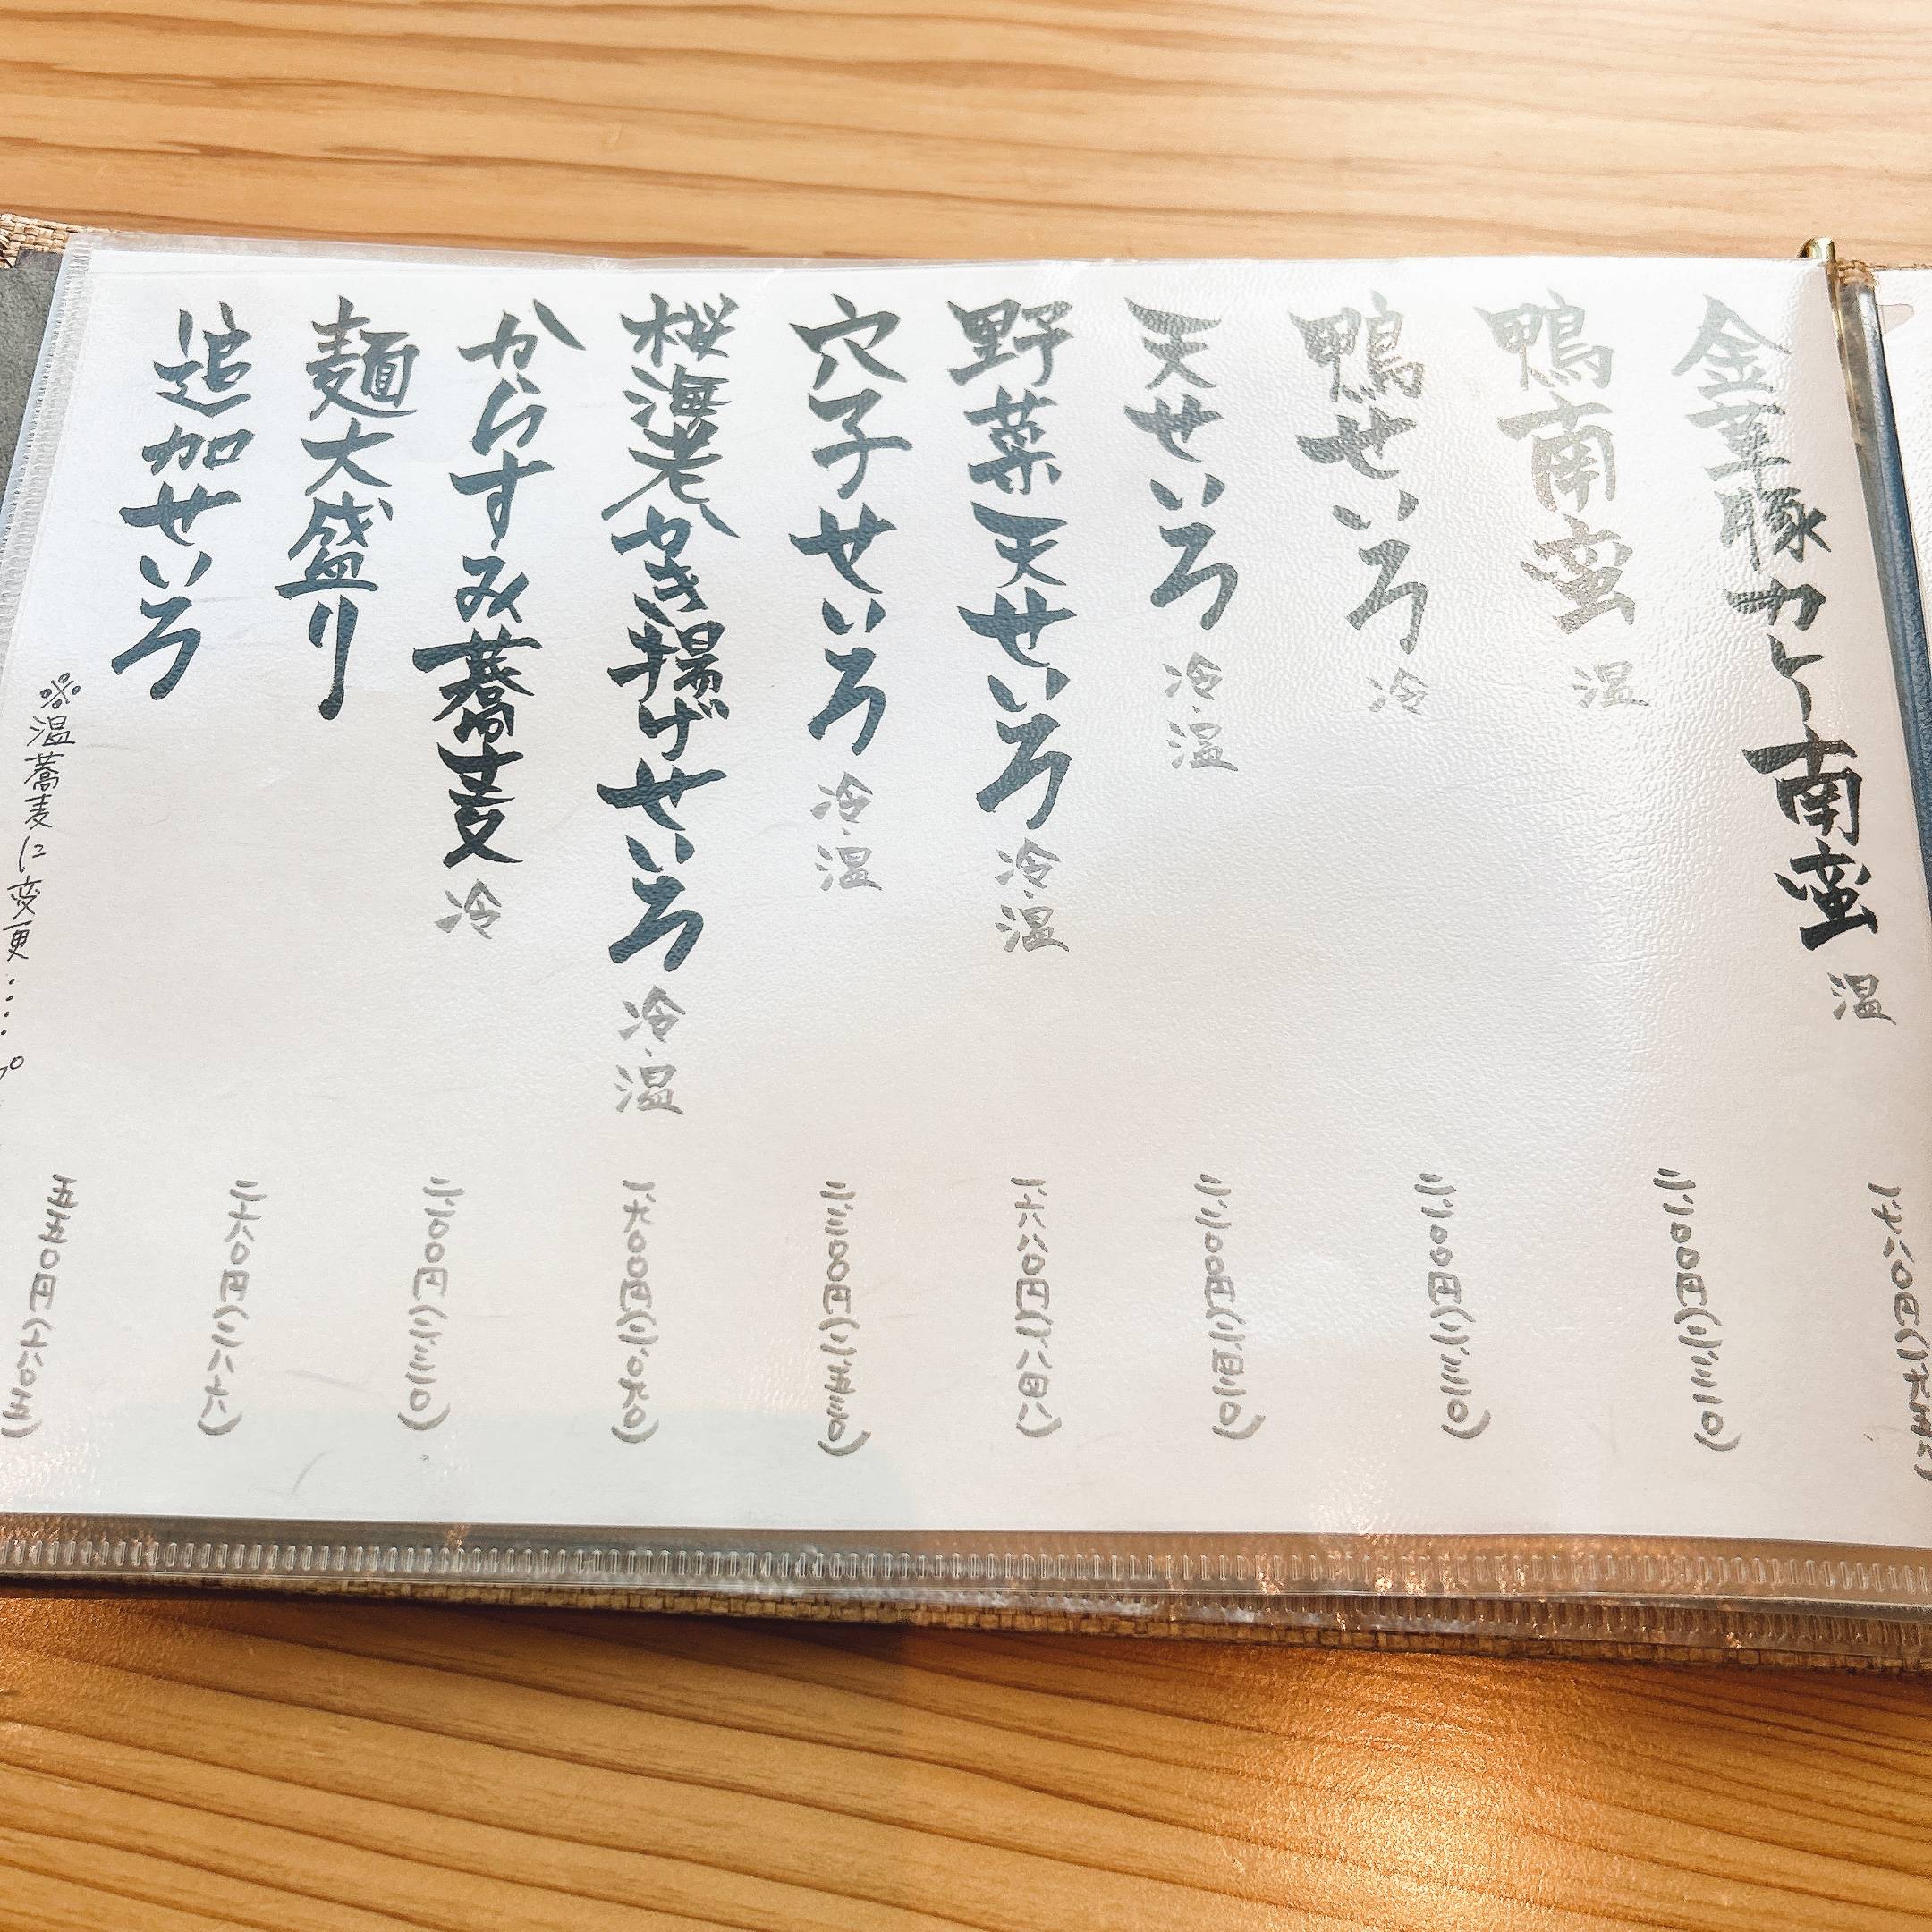 金華豚カレー南蛮 温
鴨南蛮 温 二、一〇〇円(二、三一〇)
鴨せいろ 冷 二、一〇〇円(二、三一〇)
天せいろ 冷・温 二、二〇〇円(二、四二〇)
野菜天せいろ 冷・温 一、六八〇円(一、八四八)
穴子せいろ 冷・温 二、三〇〇円(二、五三〇)
桜海老かき揚げせいろ 冷・温 一、九〇〇円(二、〇九〇)
からすみ蕎麦 冷 二、一〇〇円(二、三一〇)
麺大盛り 二六〇円(二八六)
追加せいろ 五五〇円(六〇五)
※温蕎麦に変更‥‥